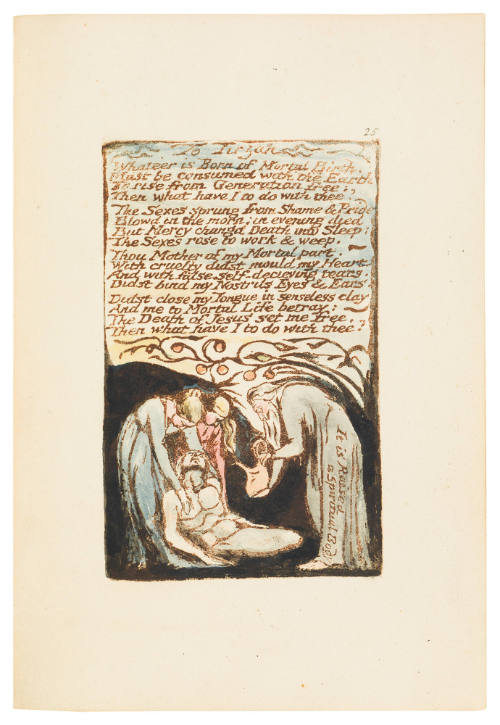 25
To Tirzah
Whate'er is Born of Mortal Birth,
Must be consumed with the Earth
To rise from Generation free;
Then what have I to do with thee?
The Sexes sprung from Shame & Pride
Blow'd in the morn: in evening died
But Mercy changd Death into Sleep;
The Sexes rose to work & weep.
Thou Mother of my Mortal part.
With cruelty didst mould my Heart.
And with false self-decieving tears.
Didst bind my Nostrils Eyes & Ears.
Didst close my Tongue in senseless clay
And me to Mortal Life betray:
The Death of Jesus set me free,
Then what have I to do with thee?
It is Raised
a Spiritual Body